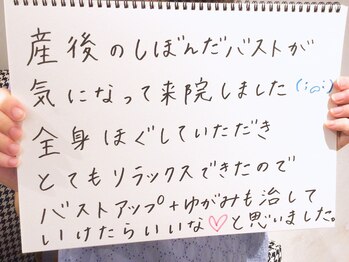 産後のしぼんだバストが
気になって来院しました(;o;)
全身ほぐしていただき
とてもリラックスできたので
バストアップ+ゆがみも治して
いけたらいいな♡と思いました。